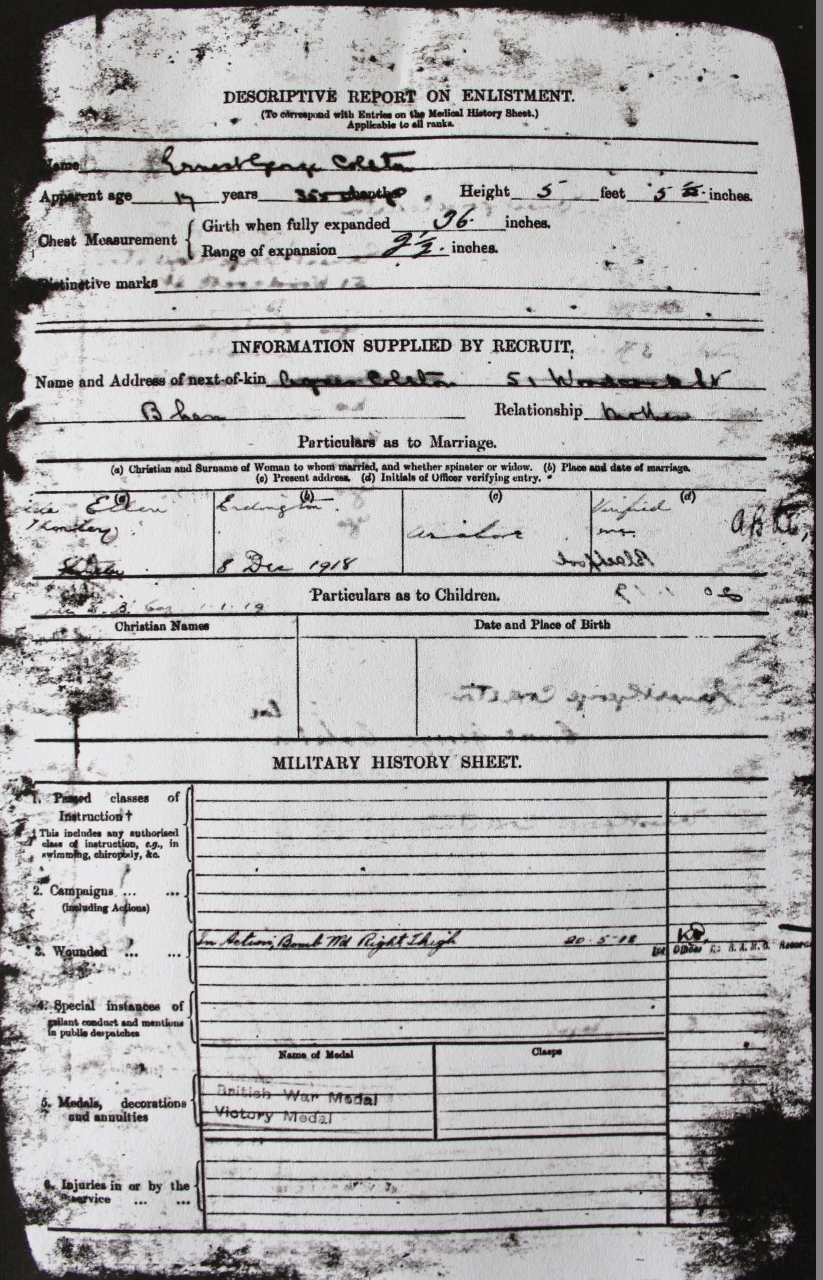 DESCRIPTIVE REPORT ON ENLISTMENT.
(To correspond with Entries on the Medical History Sheet.)
Applicable to all ranks.
Name Ernest George Colston
Apparent age 19 years 355 months. Height 5 feet 5 inches.
Chest Measurement { Girth when fully expanded 36. inches.
Range of expansion 2½. inches.
Distinctive marks
INFORMATION SUPPLIED BY RECRUIT.
Name and Address of next-of-kin Agnes Colston 51 St
B'ham Relationship Mother
Particulars as to Marriage.
(a) Christian and Surname of Woman to whom married, and whether spinster or widow. (b) Place and date of marriage.
(c) Present address. (d) Initials of Officer verifying entry.
(a) (b) (c) (d)
Ellen Erdington Verified
8 Dec 1918
Particulars as to Children.
1.1.19
Christian Names Date and Place of Birth
MILITARY HISTORY SHEET.
1. Passed classes of
Instruction †
† This includes any authorised
class of instruction, e.g., in
swimming, chiropody, &c.
2. Campaigns ... ...
(including Actions)
3. Wounded ... ... In Action, Bomb Wd Right Thigh 20-5-18
4. Special instances of
gallant conduct and mentions
in public despatches
Name of Medal Clasps
5. Medals, decorations
and annuities
British War Medal
Victory Medal
6. Injuries in or by the
service ... ...